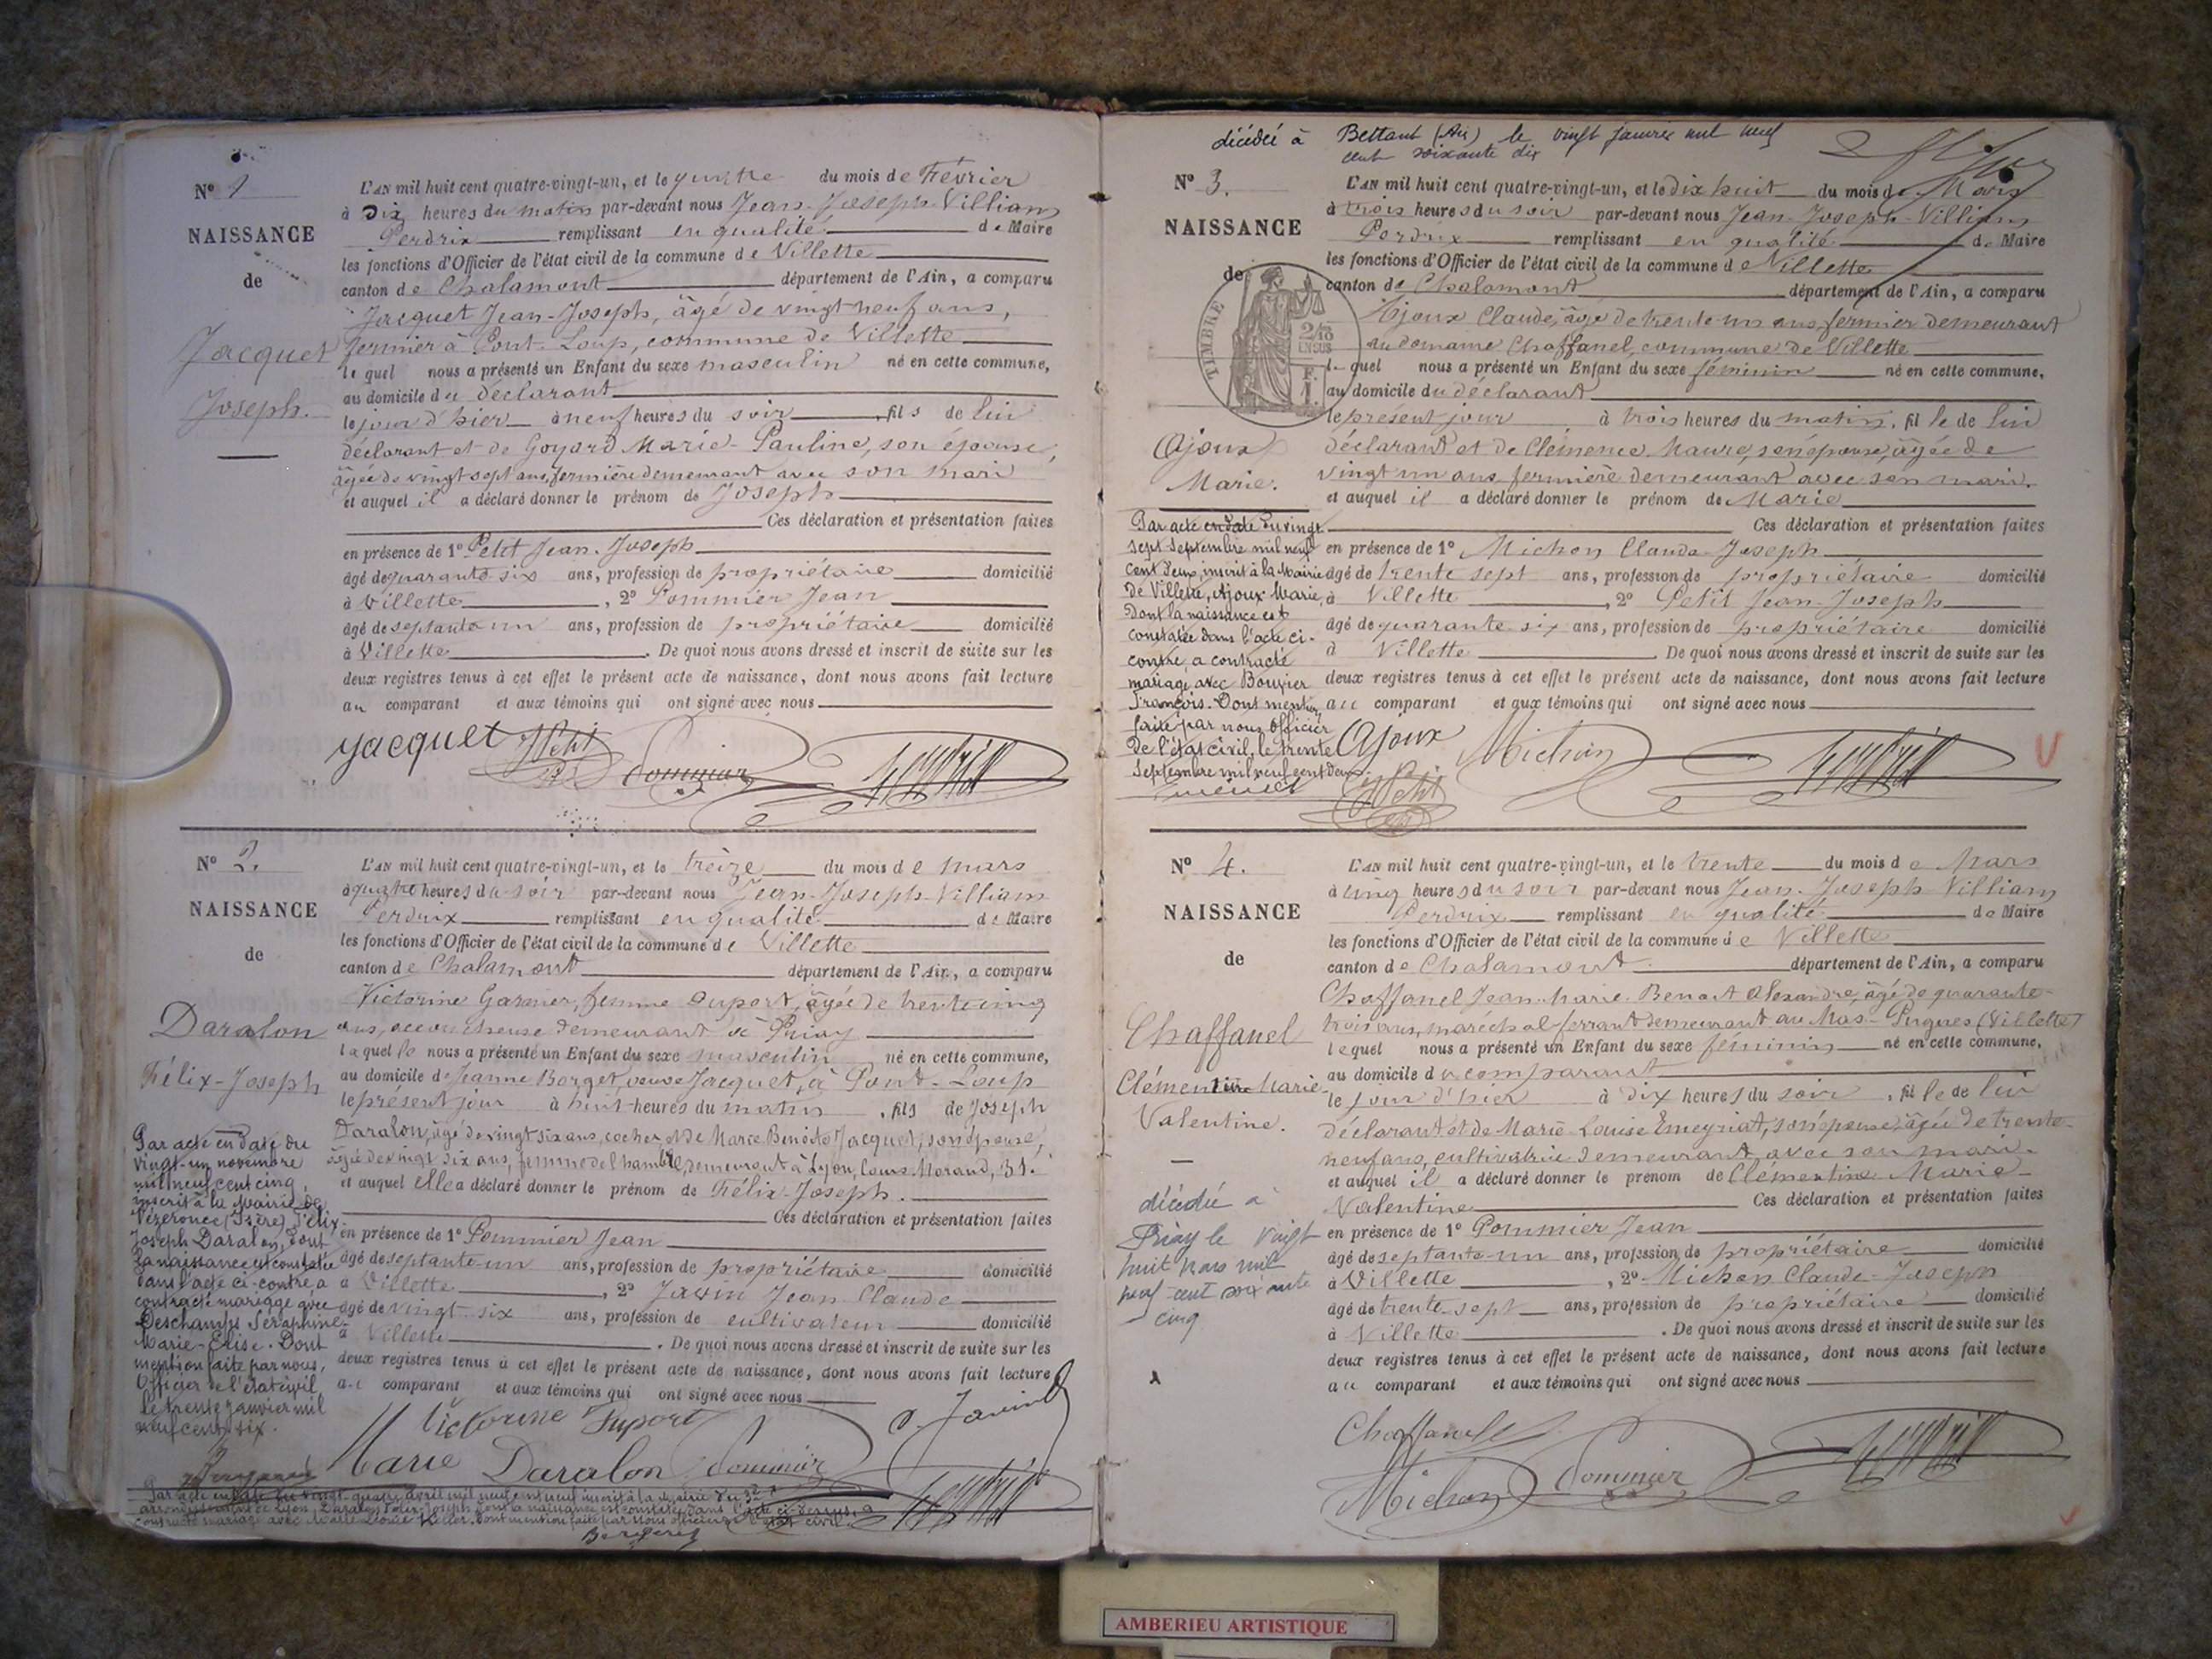 N° 1
NAISSANCE
de
Jacquet
Joseph.
L'AN mil huit cent quatre-vingt-un, et le quatre du mois de Février
à Dix heures du matin par-devant nous Jean-Joseph-Villiam
Perdrix remplissant en qualité de Maire
les fonctions d'Officier de l'état civil de la commune de Villette
canton de Chalamont département de l'Ain, a comparu
Jacquet Jean-Joseph, âgé de vingt-neuf ans,
fermier à Pont-Loup, commune de Villette
lequel nous a présenté un Enfant du sexe masculin né en cette commune,
au domicile du déclarant
le jour d'hier à neuf heures du soir, fils de lui
déclarant et de Goyard Marie-Pauline, son épouse,
âgée de vingt sept ans, fermière demeurant avec son mari
et auquel il a déclaré donner le prénom de Joseph
Ces déclaration et présentation faites
en présence de 1° Petit Jean-Joseph
âgé de quarante-six ans, profession de propriétaire domicilié
à Villette, 2° Pommier Jean
âgé de septante-un ans, profession de propriétaire domicilié
à Villette. De quoi nous avons dressé et inscrit de suite sur les
deux registres tenus à cet effet le présent acte de naissance, dont nous avons fait lecture
au comparant et aux témoins qui ont signé avec nous
Jacquet Petit
Pommier
N° 2.
NAISSANCE
de
Daralon
Félix-Joseph
Par acte en date du
vingt-un novembre
mil neuf cent cinq,
inscrit à la Mairie de
Vézeronce (Isère), Félix-
Joseph Daralon, dont
la naissance est constatée
dans l'acte ci-contre, a
contracté mariage avec
Deschamps Séraphine-
Marie-Elise. Dont
mention faite par nous,
Officier de l'état civil,
le trente janvier mil
neuf cent six.
L'AN mil huit cent quatre-vingt-un, et le treize du mois de mars
à quatre heures du soir par-devant nous Jean-Joseph-Villiam
Perdrix remplissant en qualité de Maire
les fonctions d'Officier de l'état civil de la commune de Villette
canton de Chalamont département de l'Ain, a comparu
Victorine Garnier, femme Duport, âgée de trente cinq
ans, accoucheuse demeurant à Priay
laquelle nous a présenté un Enfant du sexe masculin né en cette commune,
au domicile de Jeanne Borget, veuve Jacquet, à Pont-Loup
le présent jour à huit heures du matin, fils de Joseph
Daralon, âgé de vingt six ans, cocher et de Marie Benoîte Jacquet, son épouse,
âgée de vingt six ans, femme de chambre, demeurant à Lyon, Cours Morand, 31.
et auquel elle a déclaré donner le prénom de Félix-Joseph.
Ces déclaration et présentation faites
en présence de 1° Pommier Jean
âgé de septante-un ans, profession de propriétaire domicilié
à Villette, 2° Javin Jean Claude
âgé de vingt-six ans, profession de cultivateur domicilié
à Villette. De quoi nous avons dressé et inscrit de suite sur les
deux registres tenus à cet effet le présent acte de naissance, dont nous avons fait lecture
au comparant et aux témoins qui ont signé avec nous
Victorine Duport C. Javin
Marie Daralon Pommier
Par acte en date du vingt-quatre avril mil neuf cent neuf inscrit à la mairie du 3e
arrondissement de Lyon, Daralon Félix Joseph dont la naissance est constatée dans l'acte ci-dessus, a
contracté mariage avec Keller. Dont mention faite par nous officier de l'état civil.
décédée à Bettant (Ain) le vingt janvier mil neuf
cent soixante dix
N° 3.
NAISSANCE
de
TIMBRE
Ajoux
Marie.
Par acte en date du vingt
sept Septembre mil neuf
cent deux, inscrit à la Mairie
de Villette, Ajoux Marie,
dont la naissance est
constatée dans l'acte ci-
contre, a contracté
mariage avec Bouvier
François. Dont mention
faite par nous Officier
de l'état civil, le trente
Septembre mil neuf cent deux
L'AN mil huit cent quatre-vingt-un, et le dix huit du mois de Mars
à trois heures du soir par-devant nous Jean-Joseph-Villiam
Perdrix remplissant en qualité de Maire
les fonctions d'Officier de l'état civil de la commune de Villette
canton de Chalamont département de l'Ain, a comparu
Ajoux Claude, âgé de trente-un ans, fermier demeurant
au domaine Chaffanel, commune de Villette
lequel nous a présenté un Enfant du sexe féminin né en cette commune,
au domicile du déclarant
le présent jour à trois heures du matin, fille de lui
déclarant et de Clémence Maure, son épouse, âgée de
vingt un ans, fermière demeurant avec son mari.
et auquel il a déclaré donner le prénom de Marie
Ces déclaration et présentation faites
en présence de 1° Michon Claude-Joseph
âgé de trente sept ans, profession de propriétaire domicilié
à Villette, 2° Petit Jean-Joseph
âgé de quarante-six ans, profession de propriétaire domicilié
à Villette. De quoi nous avons dressé et inscrit de suite sur les
deux registres tenus à cet effet le présent acte de naissance, dont nous avons fait lecture
au comparant et aux témoins qui ont signé avec nous
Ajoux Michon
Petit
N° 4.
NAISSANCE
de
Chaffanel
Clémentine-Marie-
Valentine.
décédée à
Priay le vingt
huit mars mil
neuf cent soixante
cinq
L'AN mil huit cent quatre-vingt-un, et le trente du mois de Mars
à cinq heures du soir par-devant nous Jean-Joseph-Villiam
Perdrix remplissant en qualité de Maire
les fonctions d'Officier de l'état civil de la commune de Villette
canton de Chalamont département de l'Ain, a comparu
Chaffanel Jean-Marie-Benoit Alexandre, âgé de quarante-
trois ans, maréchal-ferrant demeurant au Mas-Pugues (Villette)
lequel nous a présenté un Enfant du sexe féminin né en cette commune,
au domicile du comparant
le jour d'hier à dix heures du soir, fille de lui
déclarant et de Marie-Louise Emeyriat, son épouse, âgée de trente-
neuf ans, cultivatrice demeurant avec son mari.
et auquel il a déclaré donner le prénom de Clémentine Marie-
Valentine Ces déclaration et présentation faites
en présence de 1° Pommier Jean
âgé de septante-un ans, profession de propriétaire domicilié
à Villette, 2° Michon Claude-Joseph
âgé de trente-sept ans, profession de propriétaire domicilié
à Villette. De quoi nous avons dressé et inscrit de suite sur les
deux registres tenus à cet effet le présent acte de naissance, dont nous avons fait lecture
au comparant et aux témoins qui ont signé avec nous
Chaffanel
Michon Pommier
AMBERIEU ARTISTIQUE